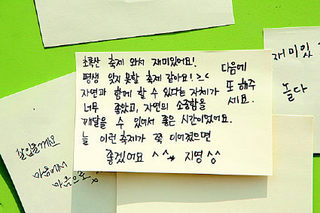 초록산 축제 와서 재미있어요!
평생 잊지못할 축제 같아요! ㄷㄷ
자연과 함께 할 수 있다는 자체가
너무 좋았고, 자연의 소중함을
깨달을 수 있어서 좋은 시간이었어요.
늘 이런 축제가 쭉 이어졌으면
좋겠어요 ^^ 지영 ^^
다음에
또 해주
세요.
재미있
놀다
마음에서
마음으로